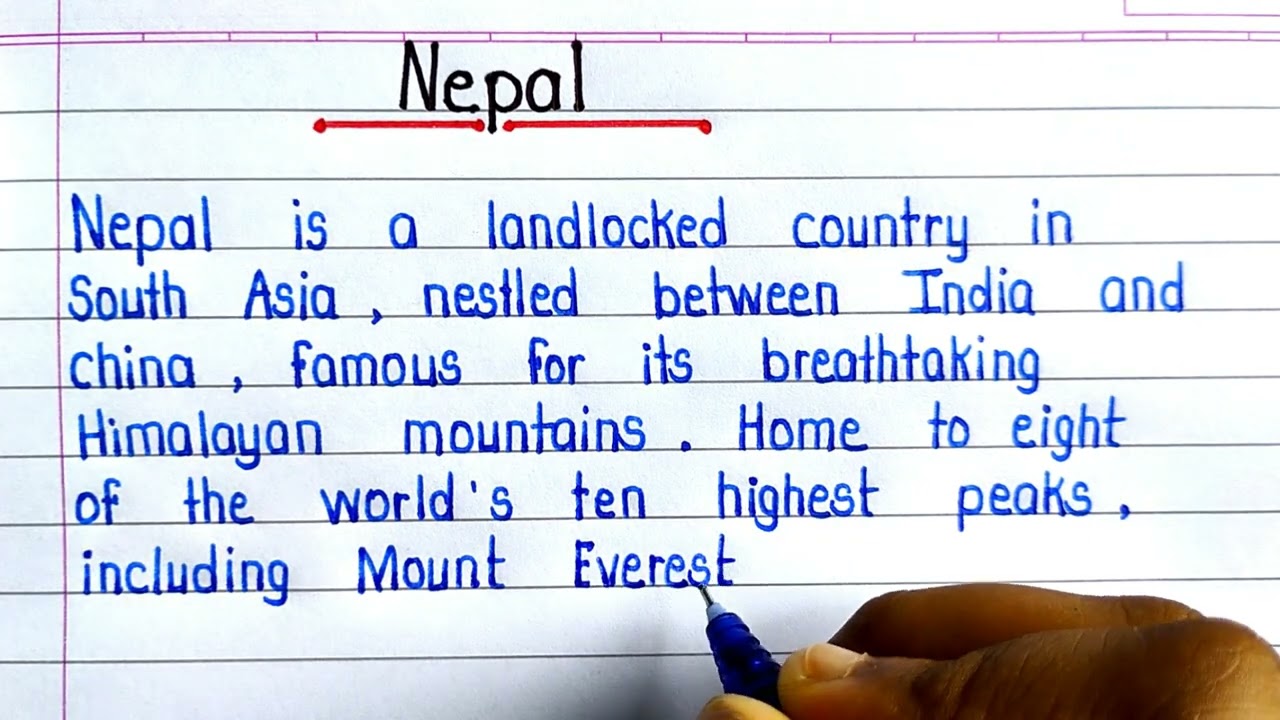 Nepal
Nepal is a landlocked country in
South Asia, nestled between India and
china, famous for its breathtaking
Himalayan mountains. Home to eight
of the world's ten highest peaks,
including Mount Everest